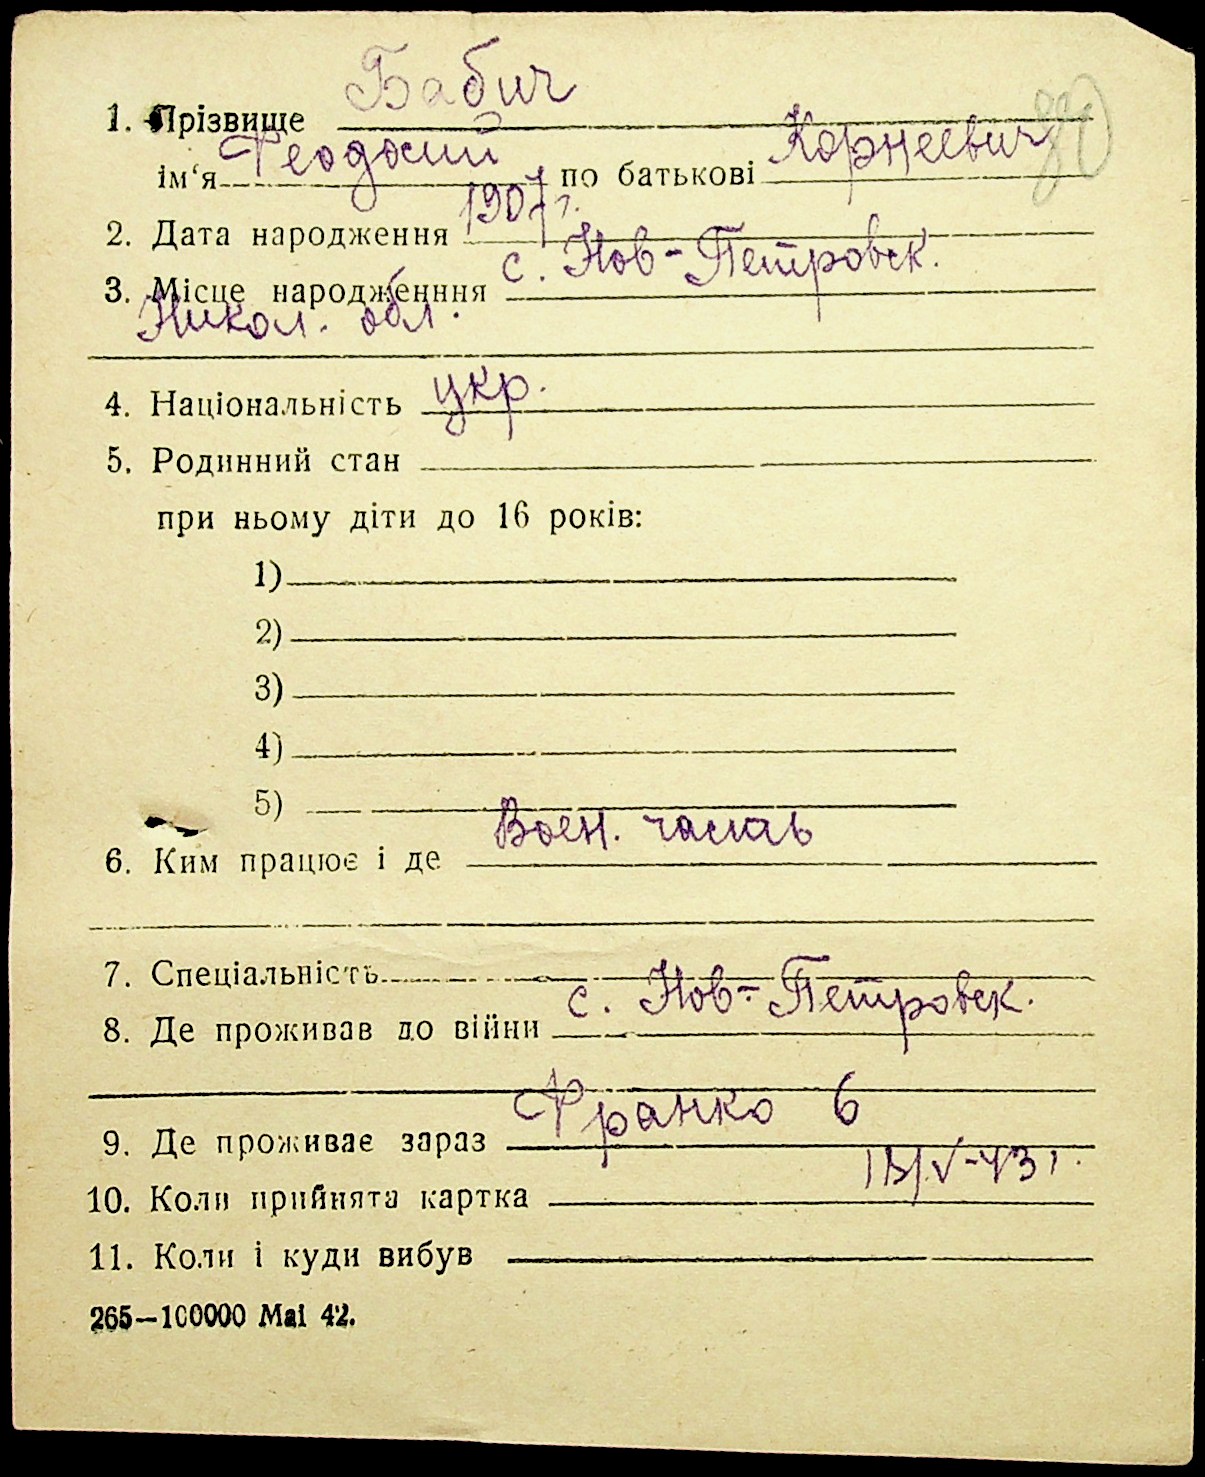 1. Прізвище Бабич
ім‘я Феодосий по батькові Корнеевич
2. Дата народження 1907 г.
3. Місце народженння с. Нов-Петровск.
Никол. обл.
4. Національність укр.
5. Родинний стан
при ньому діти до 16 років:
1)
2)
3)
4)
5)
6. Ким працює і де Воен. часть
7. Спеціальність
8. Де проживав до війни с. Нов-Петровск.
9. Де проживає зараз Франко 6
10. Коли прийнята картка
11. Коли і куди вибув
265—100000 Mai 42.